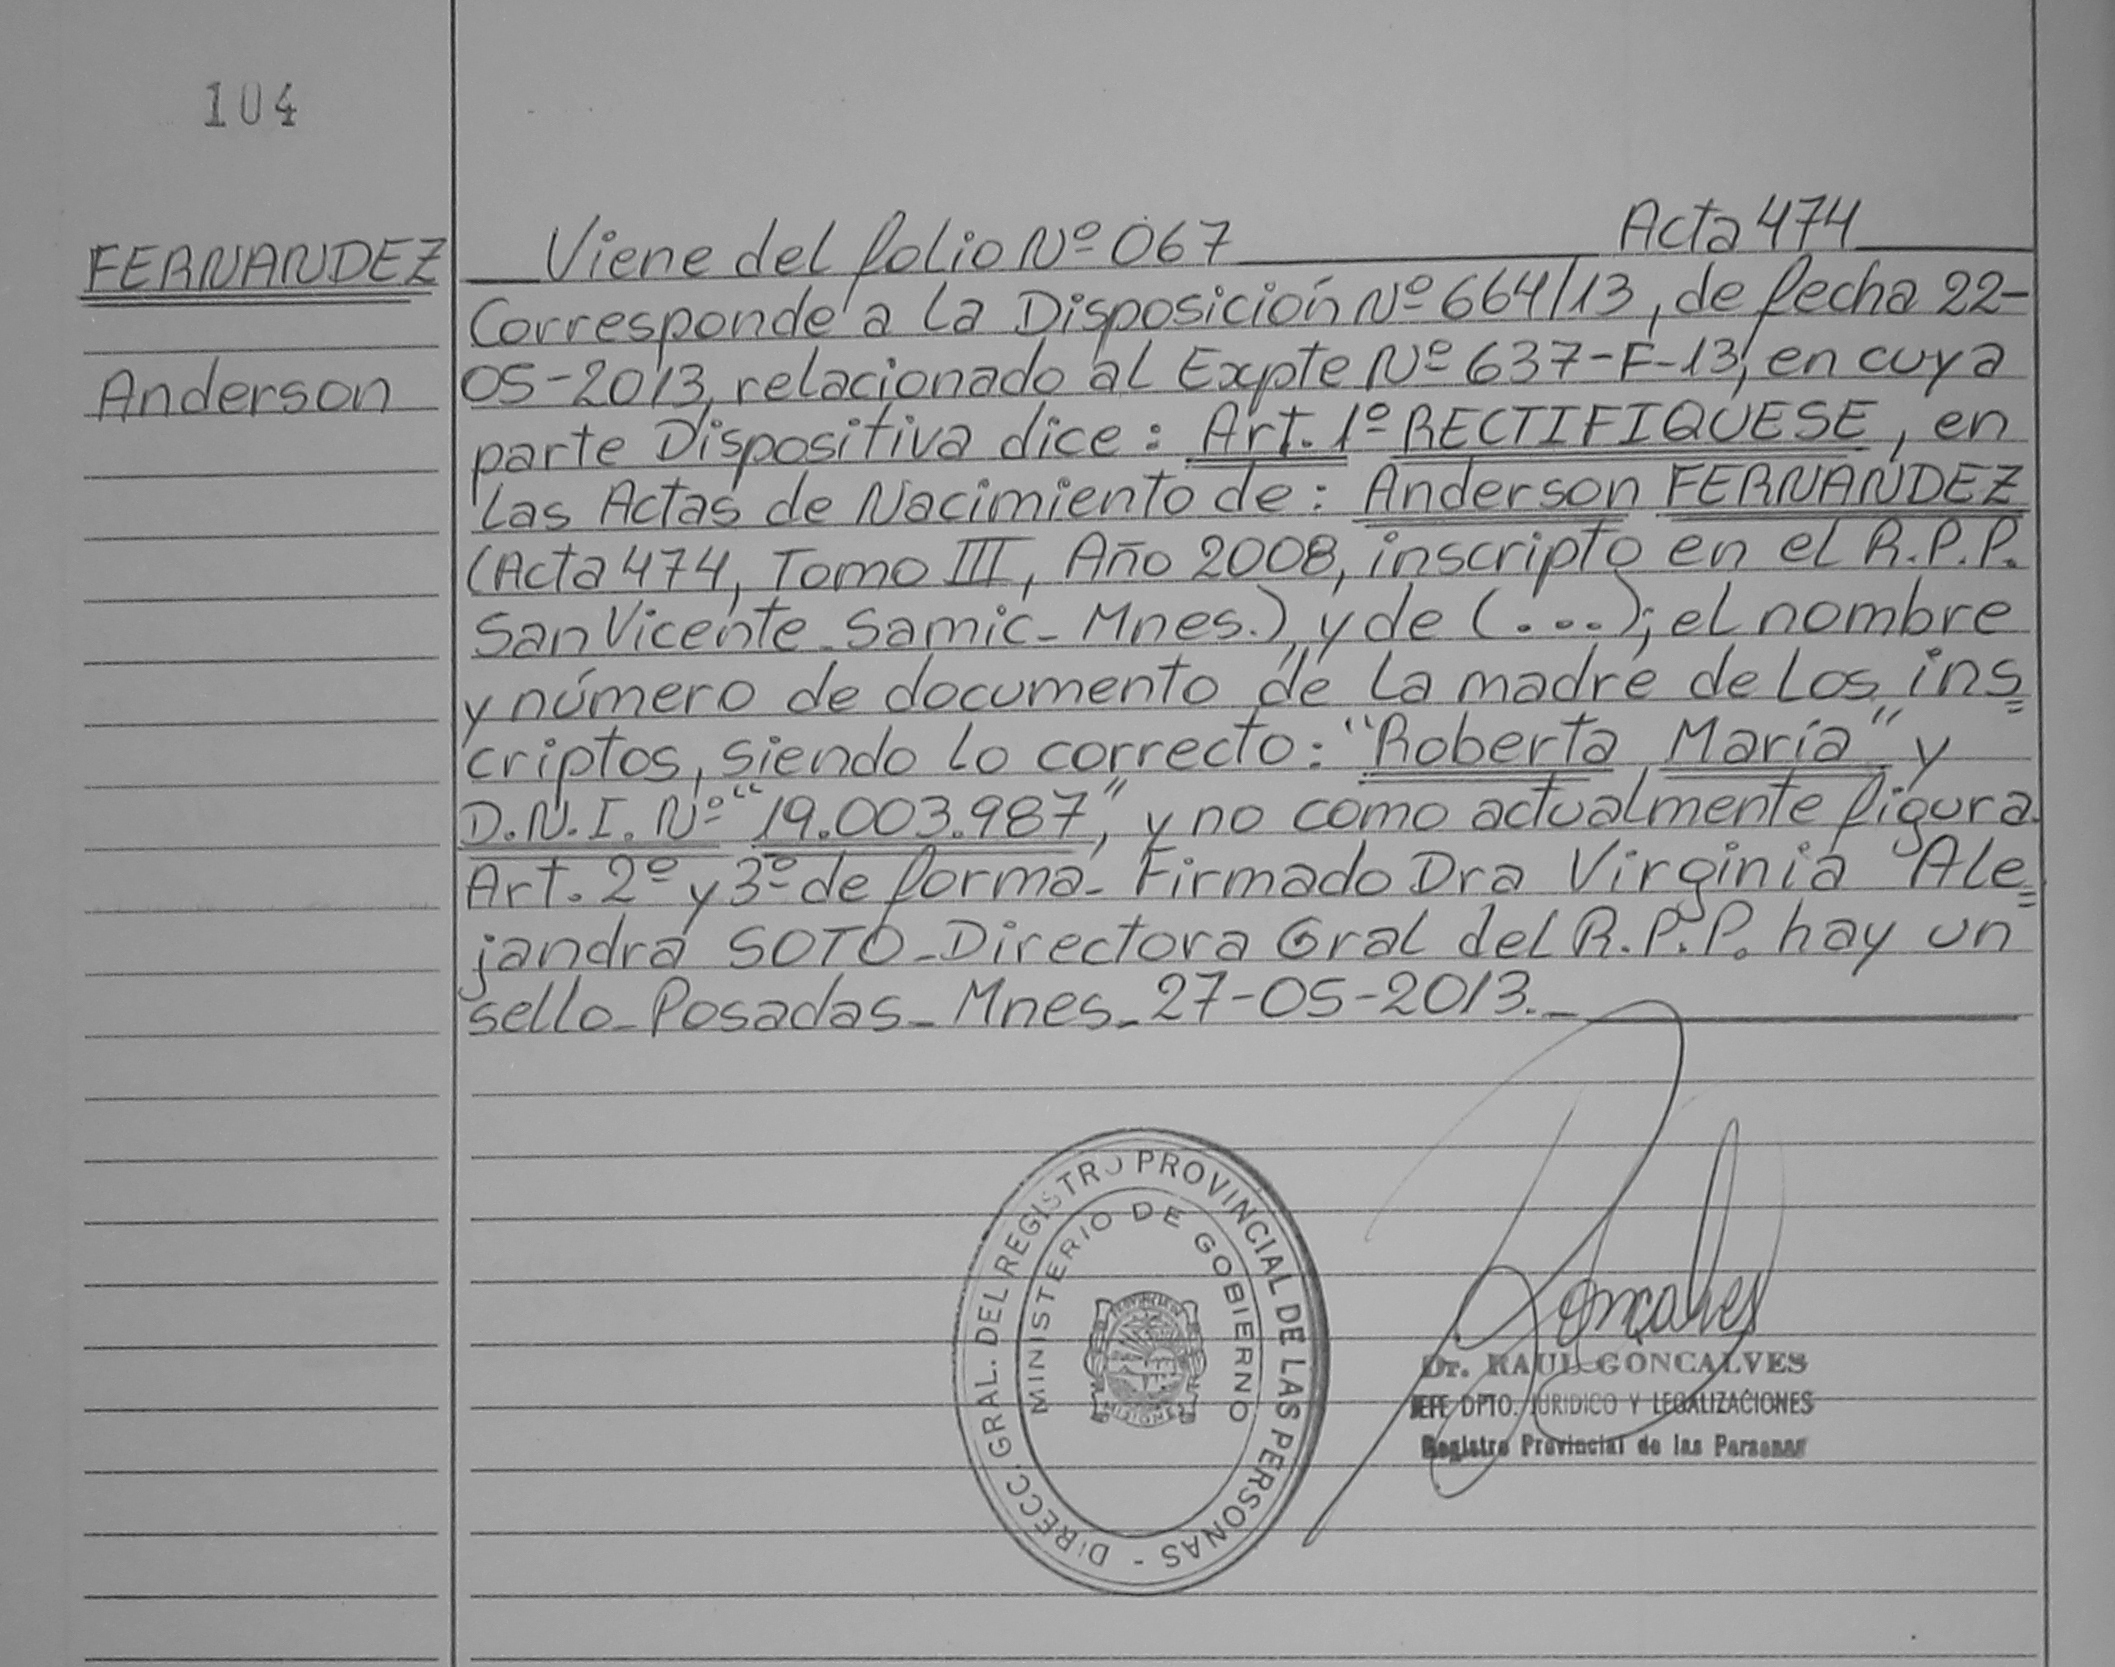 104
FERNANDEZ
Anderson
Viene del folio Nº 067 Acta 474
Corresponde a la Disposición Nº 664/13, de fecha 22-
05-2013, relacionado al Expte Nº 637-F-13, en cuya
parte Dispositiva dice: Art. 1º RECTIFIQUESE, en
las Actas de Nacimiento de: Anderson FERNANDEZ
(Acta 474, Tomo III, Año 2008, inscripto en el R.P.P.
San Vicente - Samic - Mnes.) y de (...); el nombre
y número de documento de la madre de los ins=
criptos, siendo lo correcto: "Roberta María" y
D.N.I. Nº "19.003.987", y no como actualmente figura.
Art. 2º y 3º de forma - Firmado Dra Virginia Ale=
jandra SOTO - Directora Gral del R.P.P. hay un
sello - Posadas - Mnes - 27-05-2013. -
DIRECC. GRAL. DEL REGISTRO PROVINCIAL DE LAS PERSONAS -
MINISTERIO DE GOBIERNO
PROVINCIA DE
MISIONES
Goncalves
Dr. RAUL GONCALVES
JEFE DPTO. JURIDICO Y LEGALIZACIONES
Registro Provincial de las Personas